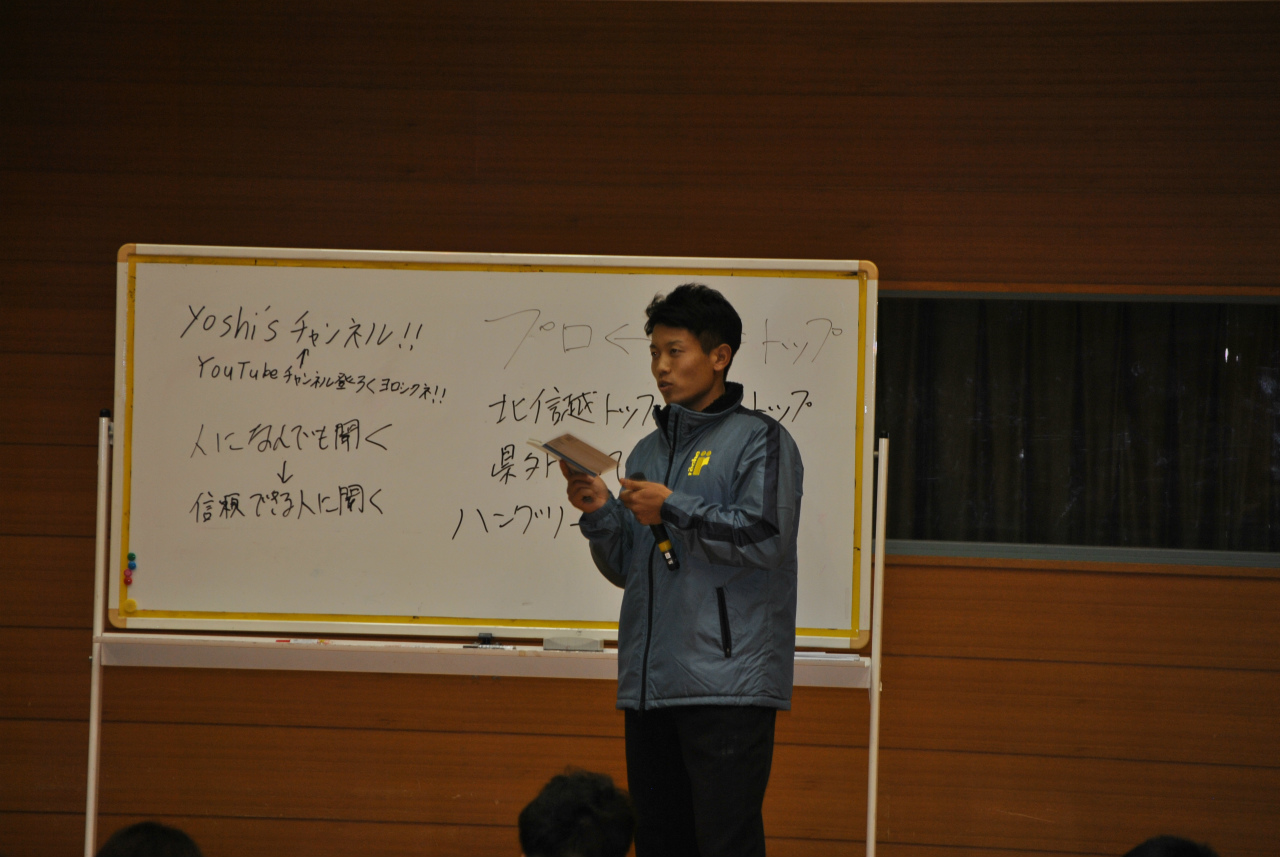 Yoshi'sチャンネル!!
↑
YouTubeチャンネル登ろくヨロシクネ!!
人になんでも聞く
↓
信頼できる人に聞く
プロ← トップ
北信越トップ トップ
県外
ハングリー